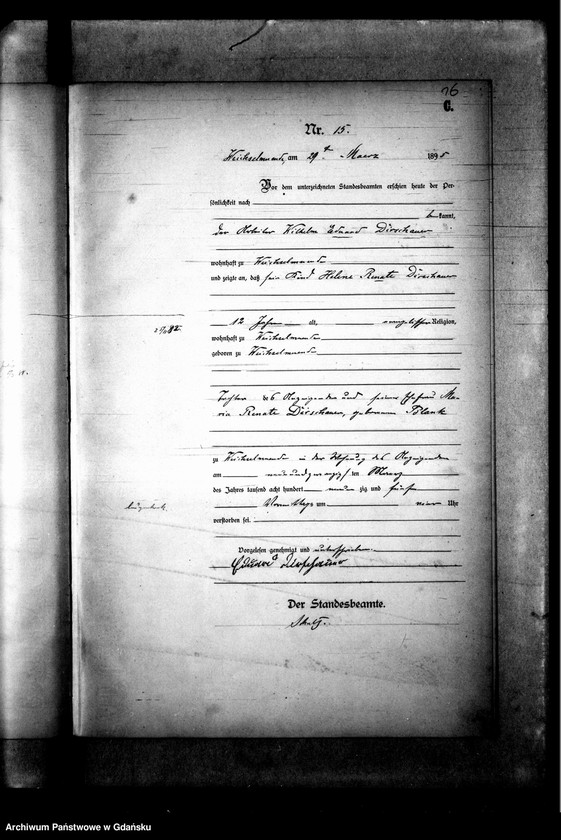 16
C.
Nr. 15.
Weichselmünde, am 29ten Maerz 1895
Vor dem unterzeichneten Standesbeamten erschien heute der Per-
sönlichkeit nach
bekannt,
der Arbeiter Wilhelm Eduard Dirschauer
wohnhaft zu Weichselmünde
und zeigte an, daß sein Kind Helene Renate Dirschauer
12 Jahre alt, evangelischer Religion,
wohnhaft zu Weichselmünde
geboren zu Weichselmünde
Tochter des Anzeigenden und seiner Ehefrau Ma-
ria Renate Dirschauer, geborenen Blank
zu Weichselmünde in der Wohnung des Anzeigenden
am neunundzwanzigsten Maerz
des Jahres tausend acht hundert neunzig und fünf
Vormittags um neun Uhr
verstorben sei.
Vorgelesen genehmigt und unterschrieben
Eduard Dirschauer
Der Standesbeamte.
Archiwum Państwowe w Gdańsku